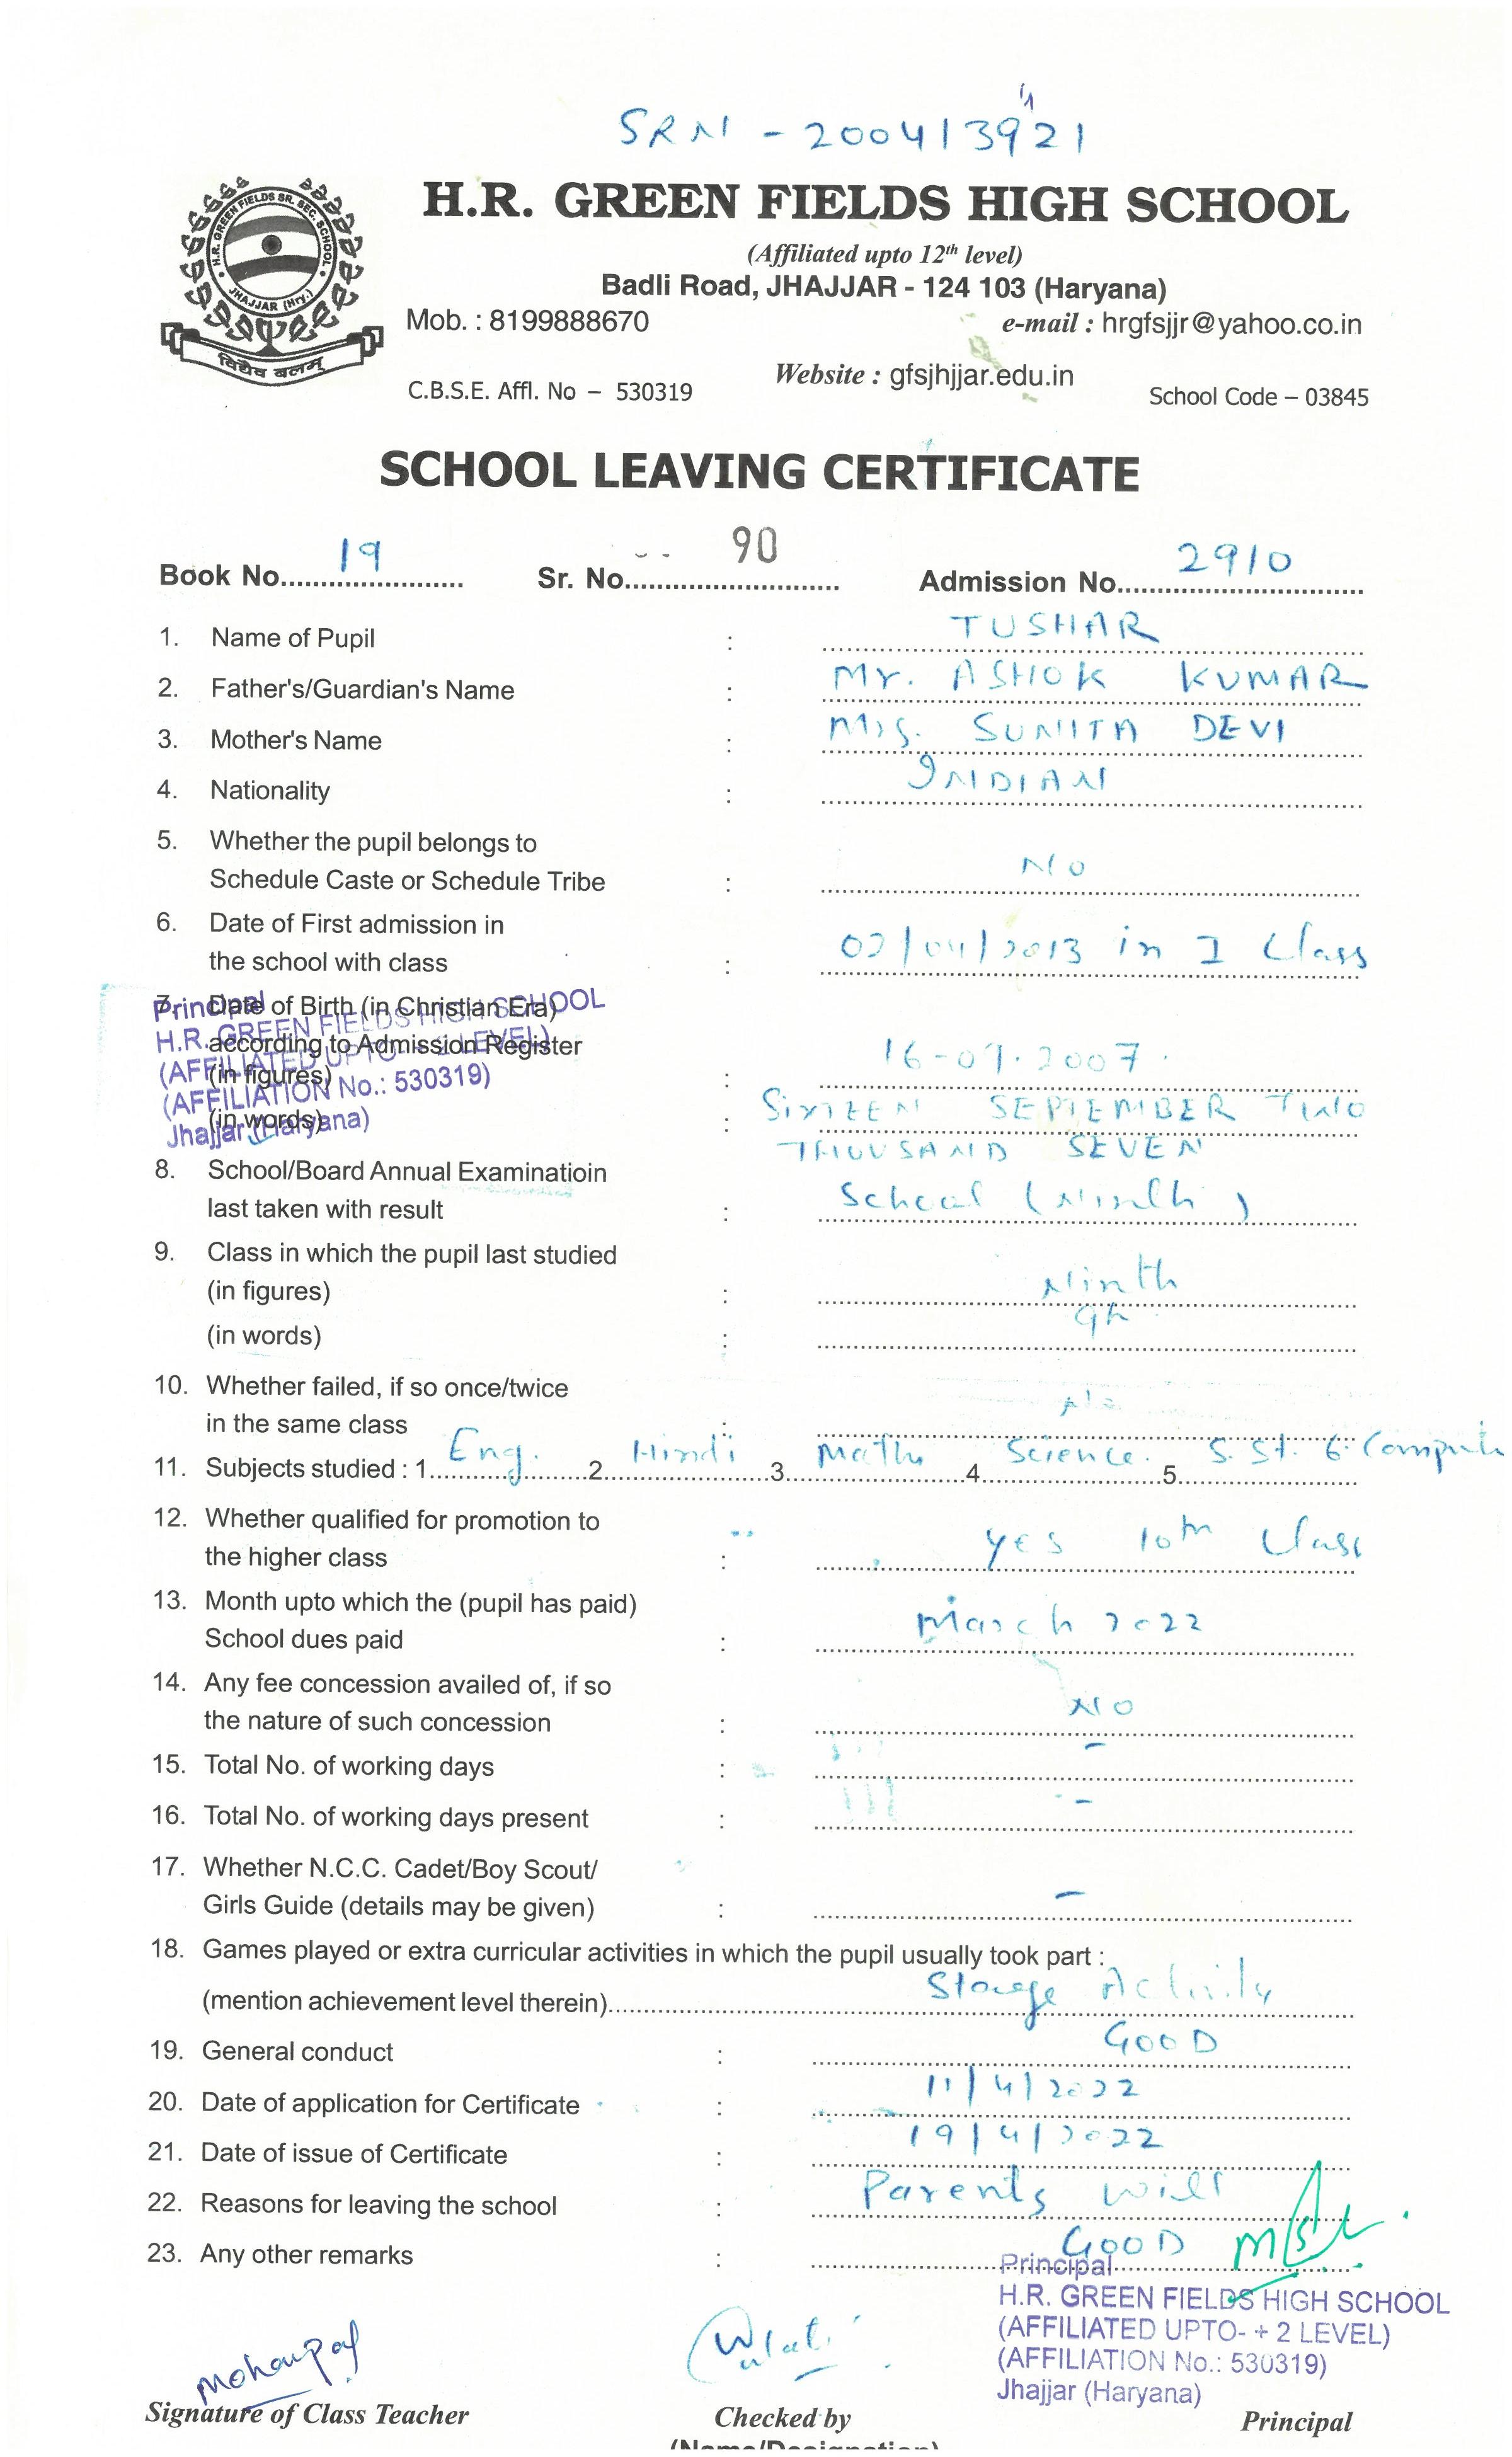 SRN - 200413921
H.R. GREEN FIELDS SR. SEC. SCHOOL
JHAJJAR (Hry.)
विद्यैव बलम्
H.R. GREEN FIELDS HIGH SCHOOL
(Affiliated upto 12th level)
Badli Road, JHAJJAR - 124 103 (Haryana)
Mob. : 8199888670 e-mail : hrgfsjjr@yahoo.co.in
Website : gfsjhjjar.edu.in
C.B.S.E. Affl. No – 530319 School Code – 03845
SCHOOL LEAVING CERTIFICATE
Book No. 19 Sr. No. 90 Admission No. 2910
1. Name of Pupil : TUSHAR
2. Father's/Guardian's Name : Mr. ASHOK KUMAR
3. Mother's Name : Mrs. SUNITA DEVI
4. Nationality : INDIAN
5. Whether the pupil belongs to
Schedule Caste or Schedule Tribe : No
6. Date of First admission in
the school with class : 02/04/2013 in I Class
7. Date of Birth (in Christian Era)
according to Admission Register
(in figures) : 16-09-2007
(in words) : SixTEEN SEPTEMBER TWO
THOUSAND SEVEN
Principal
H.R. GREEN FIELDS HIGH SCHOOL
(AFFILIATED UPTO- + 2 LEVEL)
(AFFILIATION No.: 530319)
Jhajjar (Haryana)
8. School/Board Annual Examinatioin
last taken with result : School (Ninth)
9. Class in which the pupil last studied
(in figures) : Ninth
(in words) : 9th
10. Whether failed, if so once/twice
in the same class : No
11. Subjects studied : 1. Eng. 2. Hindi 3. Maths 4. Science. 5. S.St. 6. Compute
12. Whether qualified for promotion to
the higher class : yes 10th Class
13. Month upto which the (pupil has paid)
School dues paid : March 2022
14. Any fee concession availed of, if so
the nature of such concession : NO
15. Total No. of working days : -
16. Total No. of working days present : -
17. Whether N.C.C. Cadet/Boy Scout/
Girls Guide (details may be given) : -
18. Games played or extra curricular activities in which the pupil usually took part :
(mention achievement level therein) Activity
19. General conduct : GOOD
20. Date of application for Certificate : 11/4/2022
21. Date of issue of Certificate : 19/4/2022
22. Reasons for leaving the school : Parents will
23. Any other remarks : GOOD
Principal
H.R. GREEN FIELDS HIGH SCHOOL
(AFFILIATED UPTO- + 2 LEVEL)
(AFFILIATION No.: 530319)
Jhajjar (Haryana)
Signature of Class Teacher Checked by Principal
(Name/Designation)